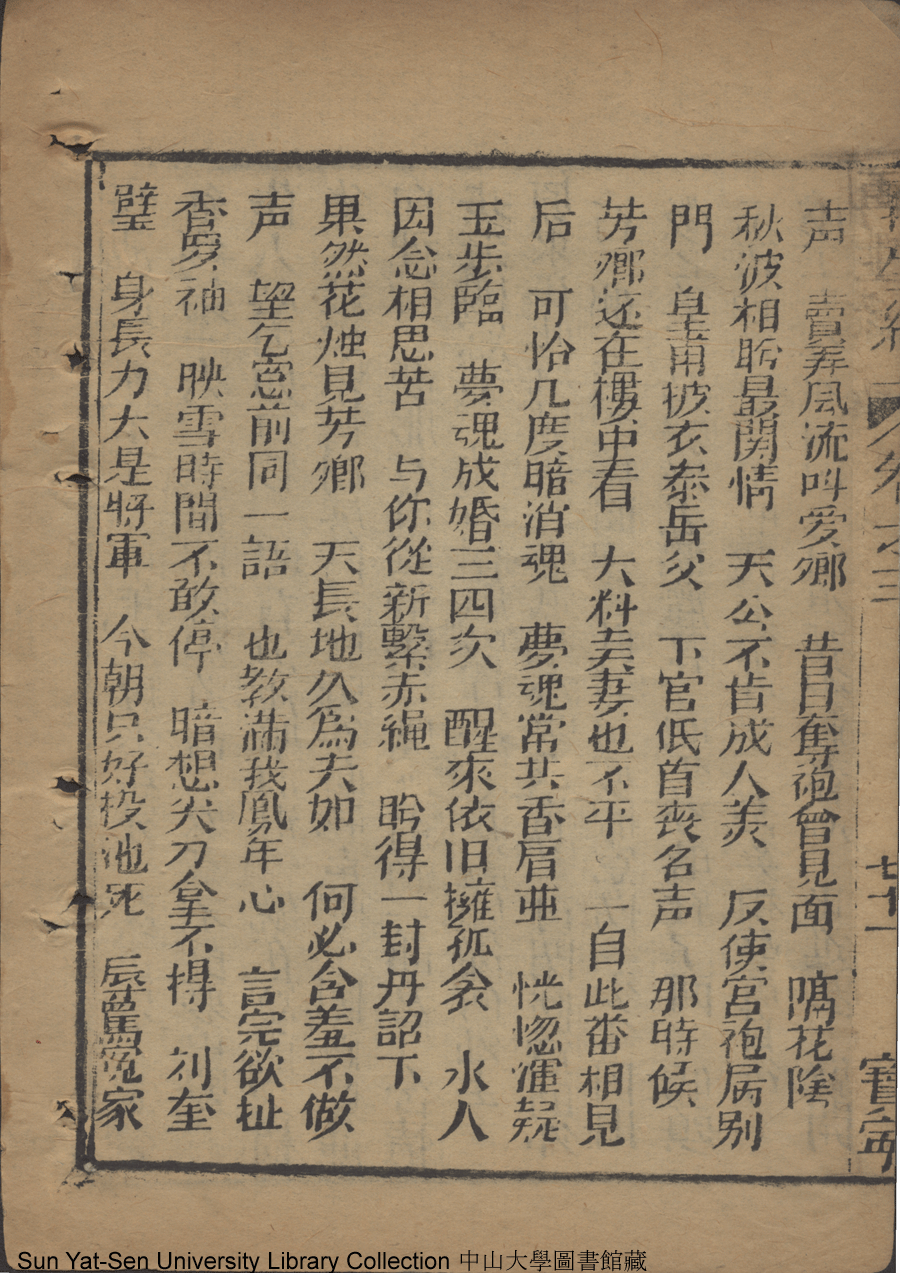 声 賣弄風流叫愛鄉 昔日奪袍曾見面 隔花陰
秋波相盻最関情 天公不肯成人美 反使宫袍屬别
門 皇甫披衣泰岳父 下官低首喪名声 那時候
芳鄉还在樓中看 大料夫妻也不平 一自此番相見
后 可怡几度暗消魂 夢魂常共香肩並 恍惚渾疑
玉步臨 夢魂成婚三四次 醒來依旧擁孤衾 水人
因念相思苦 与你從新繫赤繩 盻得一封丹詔下
果然花烛見芳鄉 天長地久為夫如 何必含羞不做
声 望乞窓前同一語 也教滿我鳳年心 言完欲扯
香罗袖 映雪時間不敢停 暗想尖刀拿不得 刘奎
璧 身長力大是將軍 今朝只好投池死 辱罵冤家
卷之三
七十一
寶寧
Sun Yat-Sen University Library Collection 中山大學圖書館藏